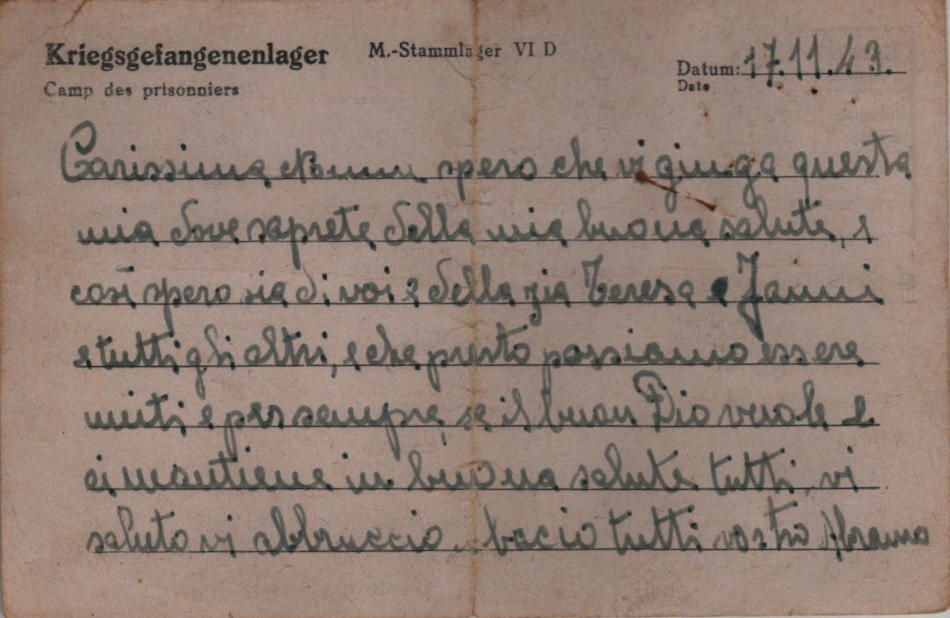 Kriegsgefangenenlager M.-Stammlager VI D
Datum: 17.11.43.
Camp des prisonniers
Date
Carissima spero che vi giunga questa
mia dove saprete della mia buona salute, e
così spero sia di voi e della zia Teresa e Janni
e tutti gli altri, e che presto possiamo essere
uniti e per sempre, se il buon Dio vuole e
ci mantiene in buona salute tutti, vi
saluto vi abbruccio e bacio tutti vostro Abramo